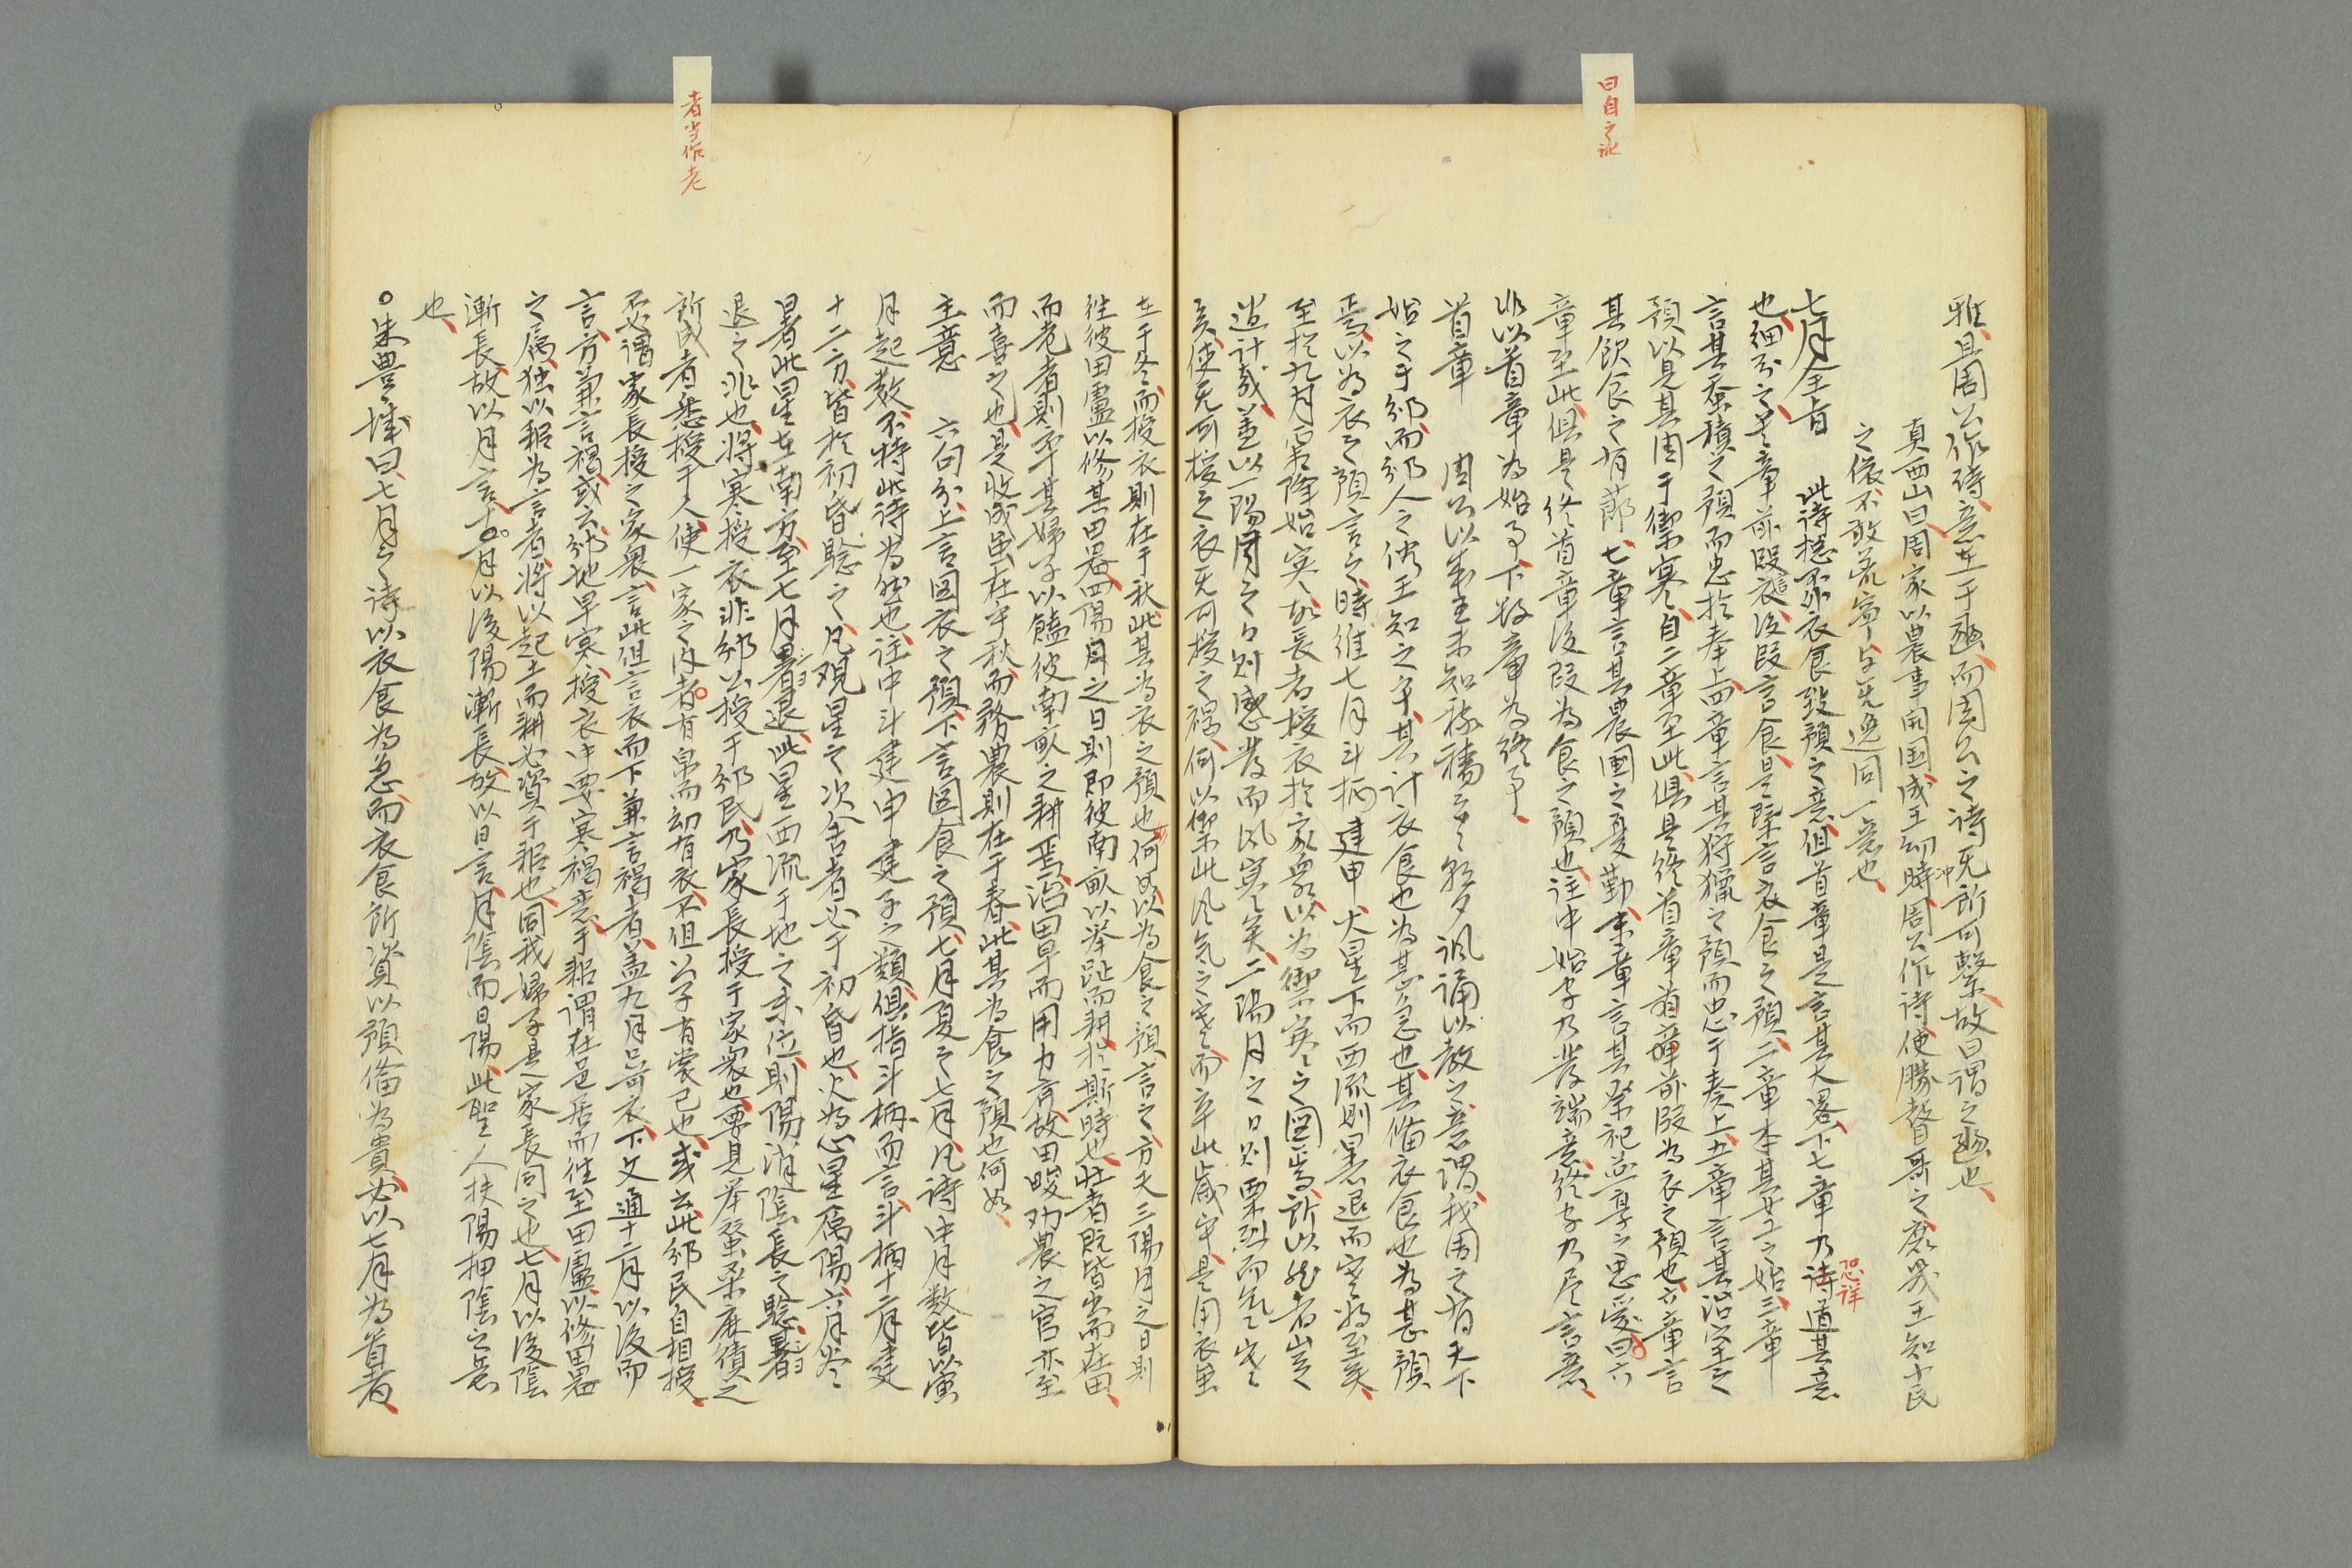 曰自之訛
雅、且周公作詩、意在于豳、而周公之詩、无所可繫、故曰謂之豳也、
真西山曰、周家以農事開国、成王幼冲時、周公作詩、使朦瞽哥之、庶㡬王知小民
之依、不敢荒寧、与无逸同一意也、
七月全旨　此詩揔不外衣食致預之意、但首章是言其大畧、下七章乃詩道其意
恐詳
也、細分之、首章前段言衣、後段言食、是緊言衣食之預、二章本其女工之始、三章
言其蚕績之預、而忠於奉上、四章言其狩獵之預、而忠于奏上、五章言其治室之
預、以見其周于禦寒、自二章至此、俱是終首章前段為衣之預也、六章言
其飲食之有節、七章言其農圃之憂勤、末章言其祭祀燕享之忠愛、曰六
章至此、俱是終首章後段為食之預也、註中始字乃發端意、終字乃尽言意、
非以首章為始事、下牧章為終事、
首章　周公以成王未知稼穡云々、朝夕諷誦以教之意、謂我周之有天下
始之于邠、而邠人之俗、王知之乎、其計衣食也為甚急也、其備衣食也為甚預
焉、以為衣之預言之、時維七月、斗柄建申、火星下而西流、則暑退而寒将至矣、
至於九月、霜降始寒、故長者授衣於家衆、以為禦寒之圖焉、所以然者、豈
過計哉、盖以一陽月之日、則觱發而風寒矣、二陽月之日、則栗烈而気寒
矣、使无可授之衣、无可授之褐、何以禦此風気之寒、而卒此歳乎、是用衣虽
者当作老
在于冬、而授衣則在于秋、此其為衣之預也、何如、以為食之預言之、方夫三陽月之日、則
往彼田廬以修其田器、四陽月之日、則即彼南畝以举趾而耕、於斯時也、壮者既皆出而在田、
而老者則率其婦子、以饁彼南畝之耕焉、治田早而用力斉、故田畯勧農之官、亦至
而喜之也、是收成虽在乎秋、而務農則在于春、此其為食之預也何如、
主意　六句分、上言図衣之預、下言図食之預、七月夏之七月、凡詩中月数皆以寅
月起数、不特此詩為然也、註中斗建申建子之類、俱指斗柄而言、斗柄十二月建
十二方、皆於初昏騐之、凡観星之次舎者、必于初昏也、火為心星、属陽、六月岺
暑者、此星在南方、至七月暑退、此星西流于地之未位、則陽消陰長之騐、暑
退之兆也、将寒授衣、非邠公授于邠民、乃家長授于家衆也、要見举蚕桑麻績之
所成者、悉授于人、使一家之内、者有帛而幼有衣、不但公子有裳已也、或云此邠民自相授、
不必謂家長授之家衆、言此但言衣而下兼言褐者、盖九月只可衣、下文通十二月以後而
言、方兼言褐、或云邠地早寒、授衣中要寒褐意、于耜謂在邑居而往至田廬、以修田器
之属、独以耜為言者、将以起土而耕、必資于耜也、同我婦子、是一家長同之也、七月以後陰
漸長、故以月言、十一月以後陽漸長、故以日言、月陰而日陽、此聖人扶陽抑陰之意
也、
○朱豊城曰、七月之詩、以衣食為急、而衣食所資、以預備為貴、必以七月為首者、